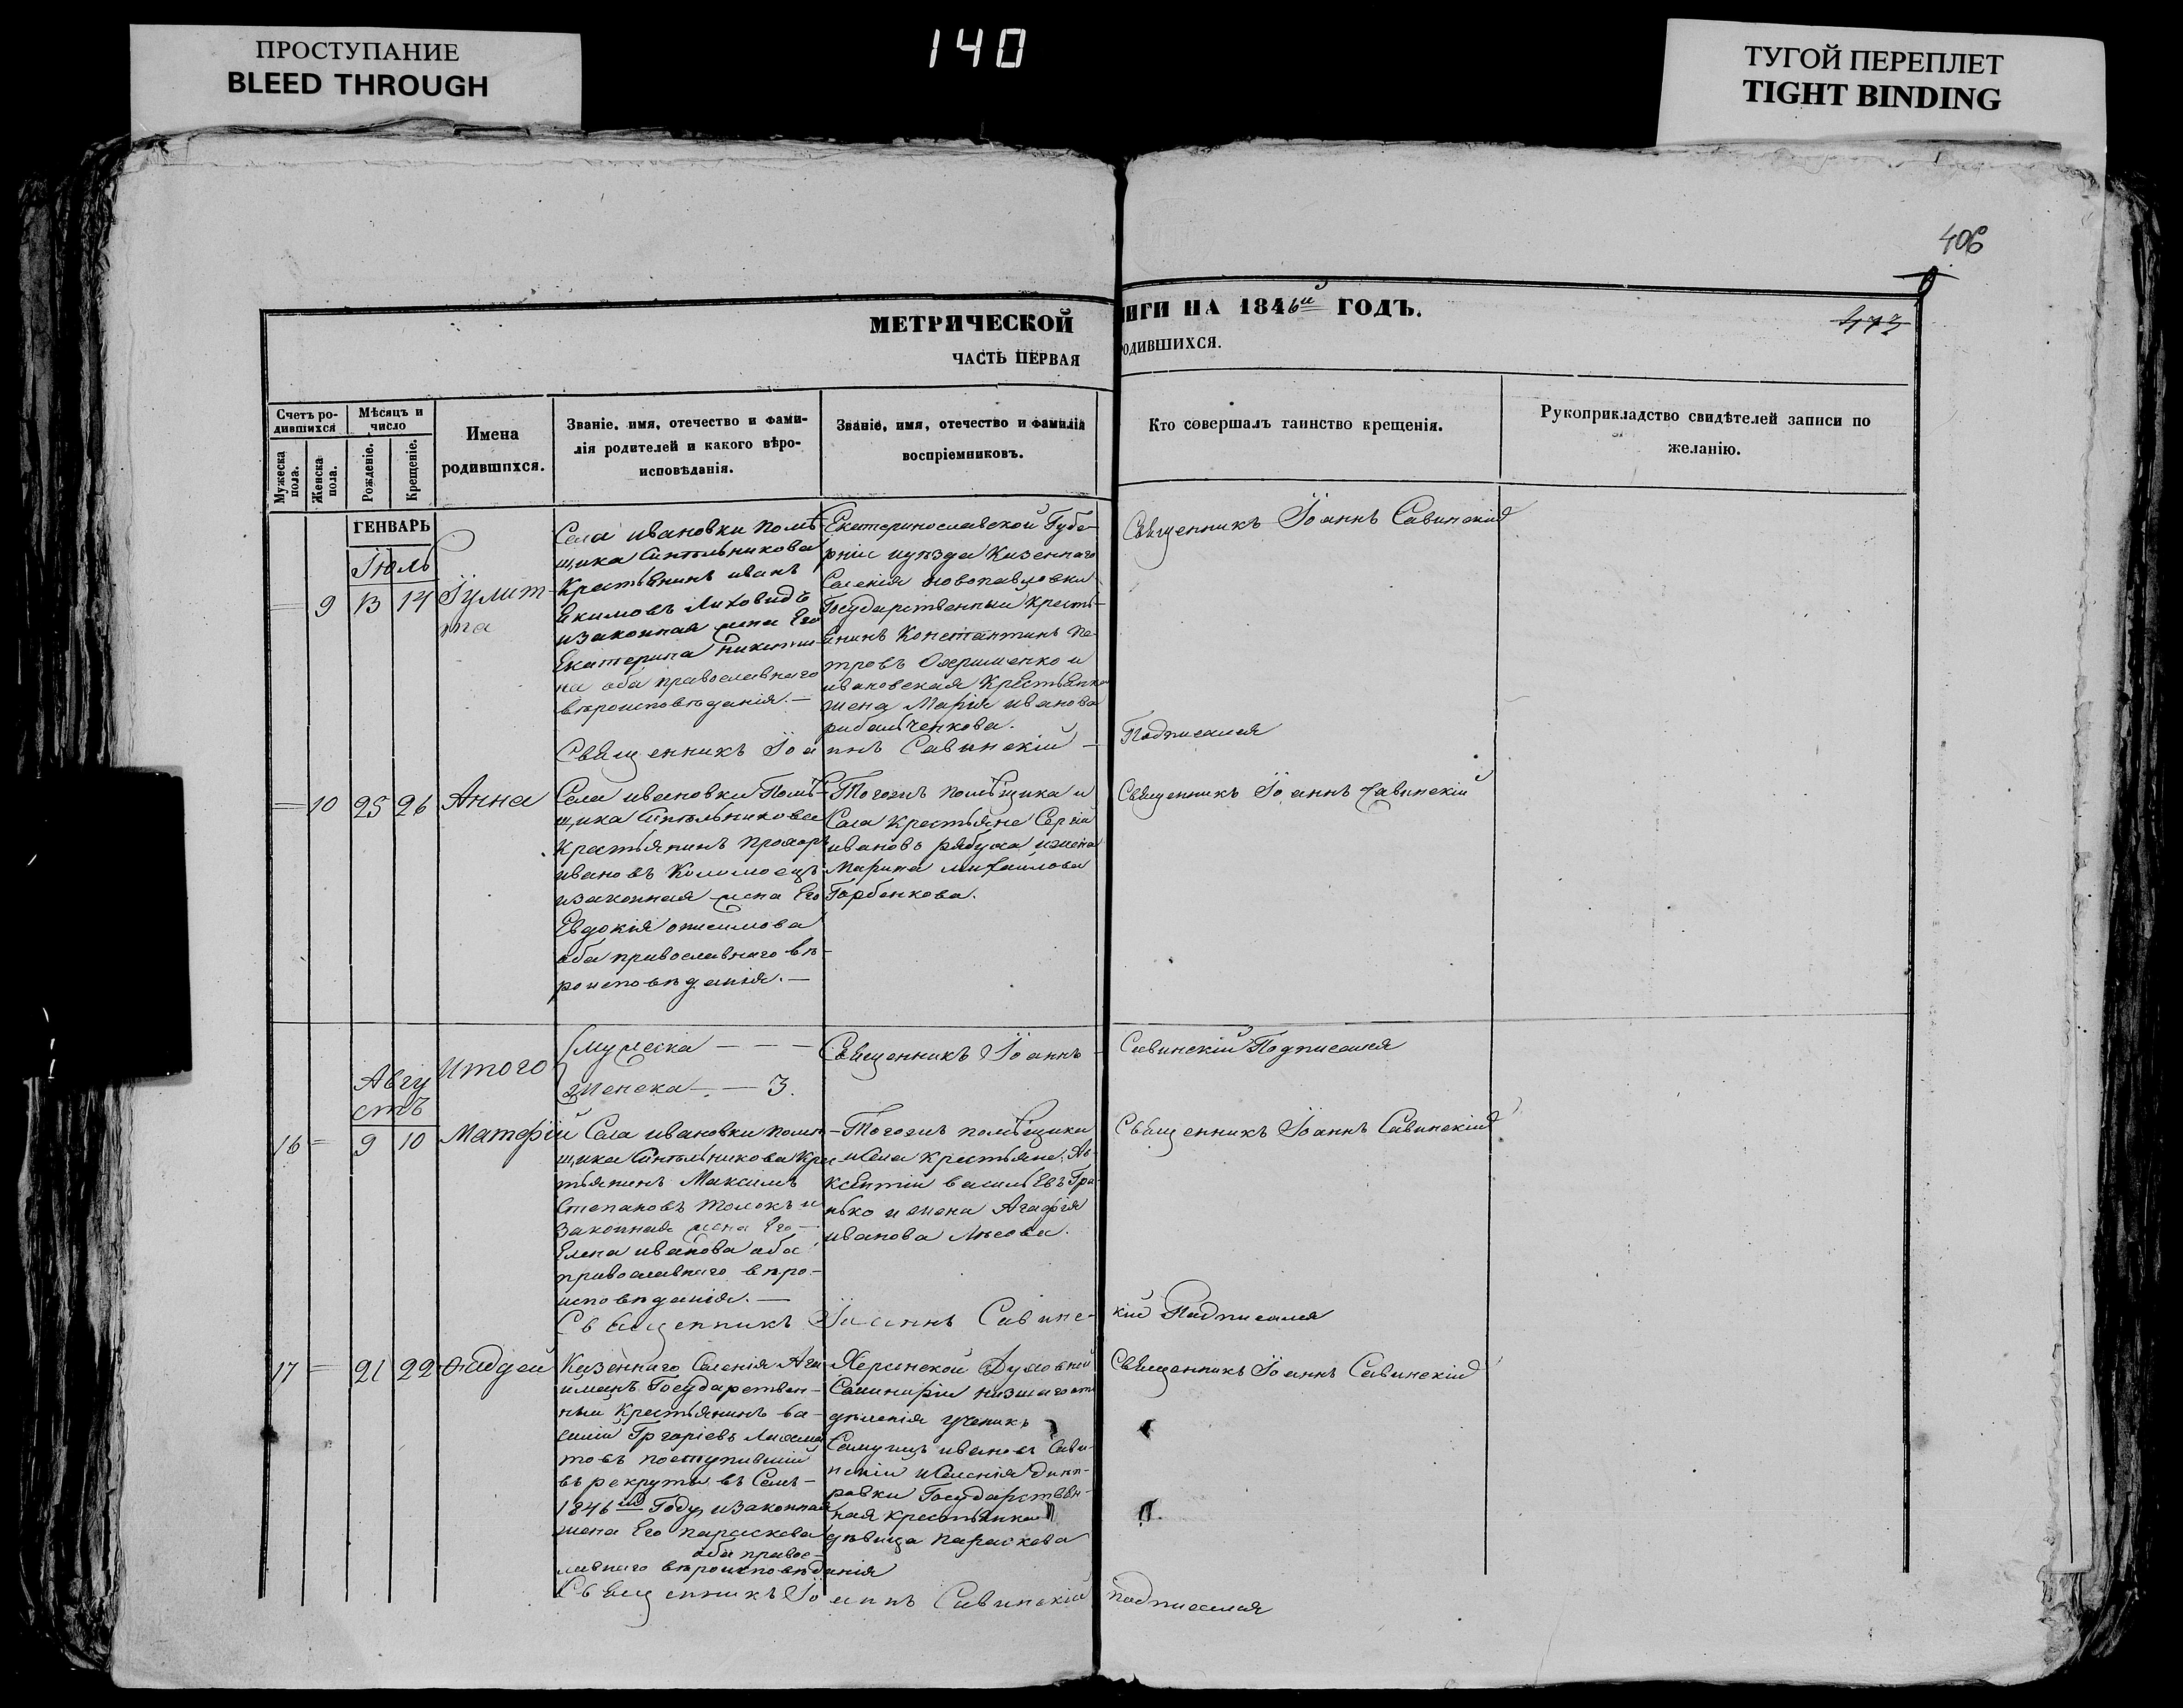 ПРОСТУПАНИЕ
BLEED THROUGH
140
ТУГОЙ ПЕРЕПЛЕТ
TIGHT BINDING
406
МЕТРИЧЕСКОЙ
ИГИ НА 1846й ГОДЪ.
ЧАСТЬ ПЕРВАЯ
ОДИВШИХСЯ.
Счетъ ро-
дившихся
Мѣсяцъ и
число
Мужеска
пола.
Женска
пола.
Рожденіе.
Крещеніе.
Имена
родившихся.
Званіе, имя, отечество и фами-
лія родителей и какого вѣро-
исповѣданія.
Званіе, имя, отечество и фамилія
воспріемниковъ.
Кто совершалъ таинство крещенія.
Рукоприкладство свидѣтелей записи по
желанію.
ГЕНВАРЬ
Іюль
9 13 14 Іулит
та
Села ивановки помѣ-
щика
Крестьянинъ иванъ
Екимовъ Лиховидъ
изаконная жена Его
Екатерина
на оба православнаго
вѣроисповѣданія.—
Екатеринославской Губе-
рніи уѣзда Казеннаго
Селенія новопавловки
Государственный кресть-
янинъ Константинъ пе-
тровъ Охрименко и
ивановская Крестьянка
жена Марія иванова
рибальченкова.
Священникъ Іоаннъ Савинскій
Священникъ Іоаннъ Савинскій — Подписался
10 25 26 Анна
Села ивановки Помѣ-
щика
Крестьянинъ прохоръ
ивановъ Коломоецъ
изаконная жена Его
Евдокія онисимова
оба православнаго вѣ-
роисповѣданія.—
Тогожъ помѣщика и
Села Крестьяне Сергій
ивановъ рябуха ижена
Марина михаилова
Горбенкова.
Священникъ Іоаннъ Савинскій
Итого
Мужеска — — —
Женска — — 3.
Священникъ Іоаннъ Савинскій Подписался
Авгу
стъ
16 9 10 Матфій
Села ивановки помѣ-
щика Крес
тьянинъ Максимъ
Степановъ толокъ и
законная жена Его—
Елена иванова оба
православнаго вѣро-
исповѣданія.—
Тогожъ помѣщика
иСела Крестьяне: Ав-
ксентій васильЕвъ Гри-
нько и жена Агафія
иванова Лисова.
Священникъ Іоаннъ Савинскій
Священникъ Іоаннъ Савинскій Подписался
17 21 22 Фадей
Казеннаго Селенія Аги
иманъ Государствен-
ный Крестьянинъ ва-
силій Григоріевъ
товъ поступившій
въ рекруты въ Семъ-
1846мъ Году изаконная
жена Его параскева
оба правос-
лавнаго вѣроисповѣданія
Херсонской Духовной
Семинаріи низшаго от
дѣленія ученикъ
ивановъ Сави-
нскій иСеленія днѣп-
ровки Государствен-
ная крестьянка
дѣвица параскева
Священникъ Іоаннъ Савинскій
Священникъ Іоаннъ Савинскій подписался